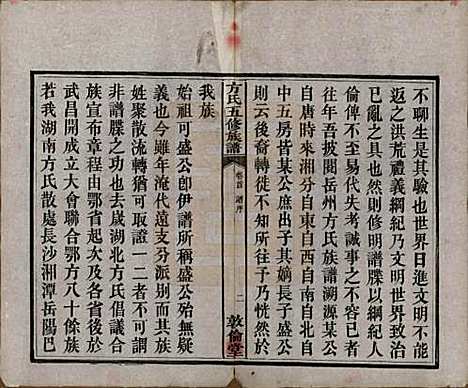 不聊生是其驗也世界日進文明不能
返之洪荒禮義綱紀乃文明世界致治
已亂之具也然則修明譜牒以綱紀人
倫俾不至易代失考誠事之不容已者
往年吾披閱岳州方氏族譜溯源某公
自唐時來湘分自東自西自南自北自
中五房皆某公庶出子其嫡長子盛公
則云後裔失修予時意之乃恍然於
方氏五修族譜
卷首 譜序
二
敦倫堂
我族
始祖可盛公卽伊譜所稱盛公殆無疑
義也今雖年湮代遠支分派別而同
姓聚散流轉猶可取證一二者不可謂
非譜牒之功也去歲湖北方氏倡議合
族宣布章程由鄂省以及各省先已在
武昌開成立大會聯合鄂方八十餘族
若我湖南方氏散處長沙湘潭岳陽巴